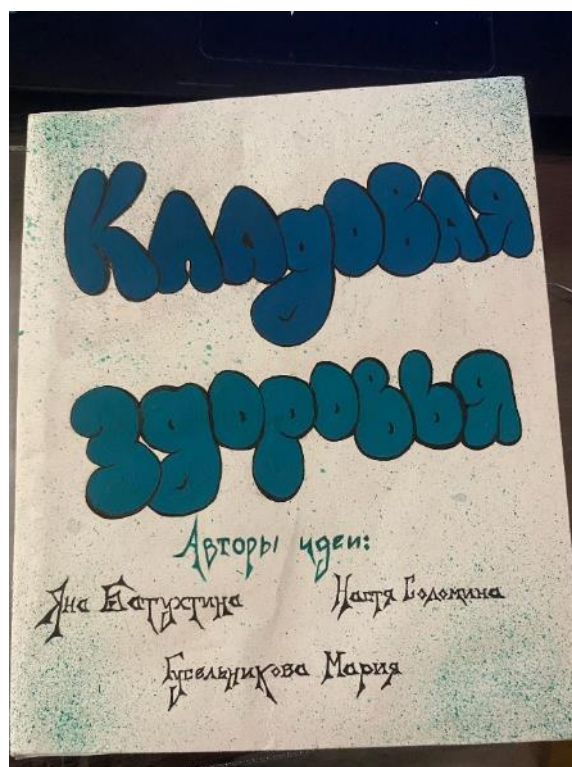 Кладовая
здоровья
Авторы идеи:
Яна Батухтина Настя Соломина
Гусельникова Мария